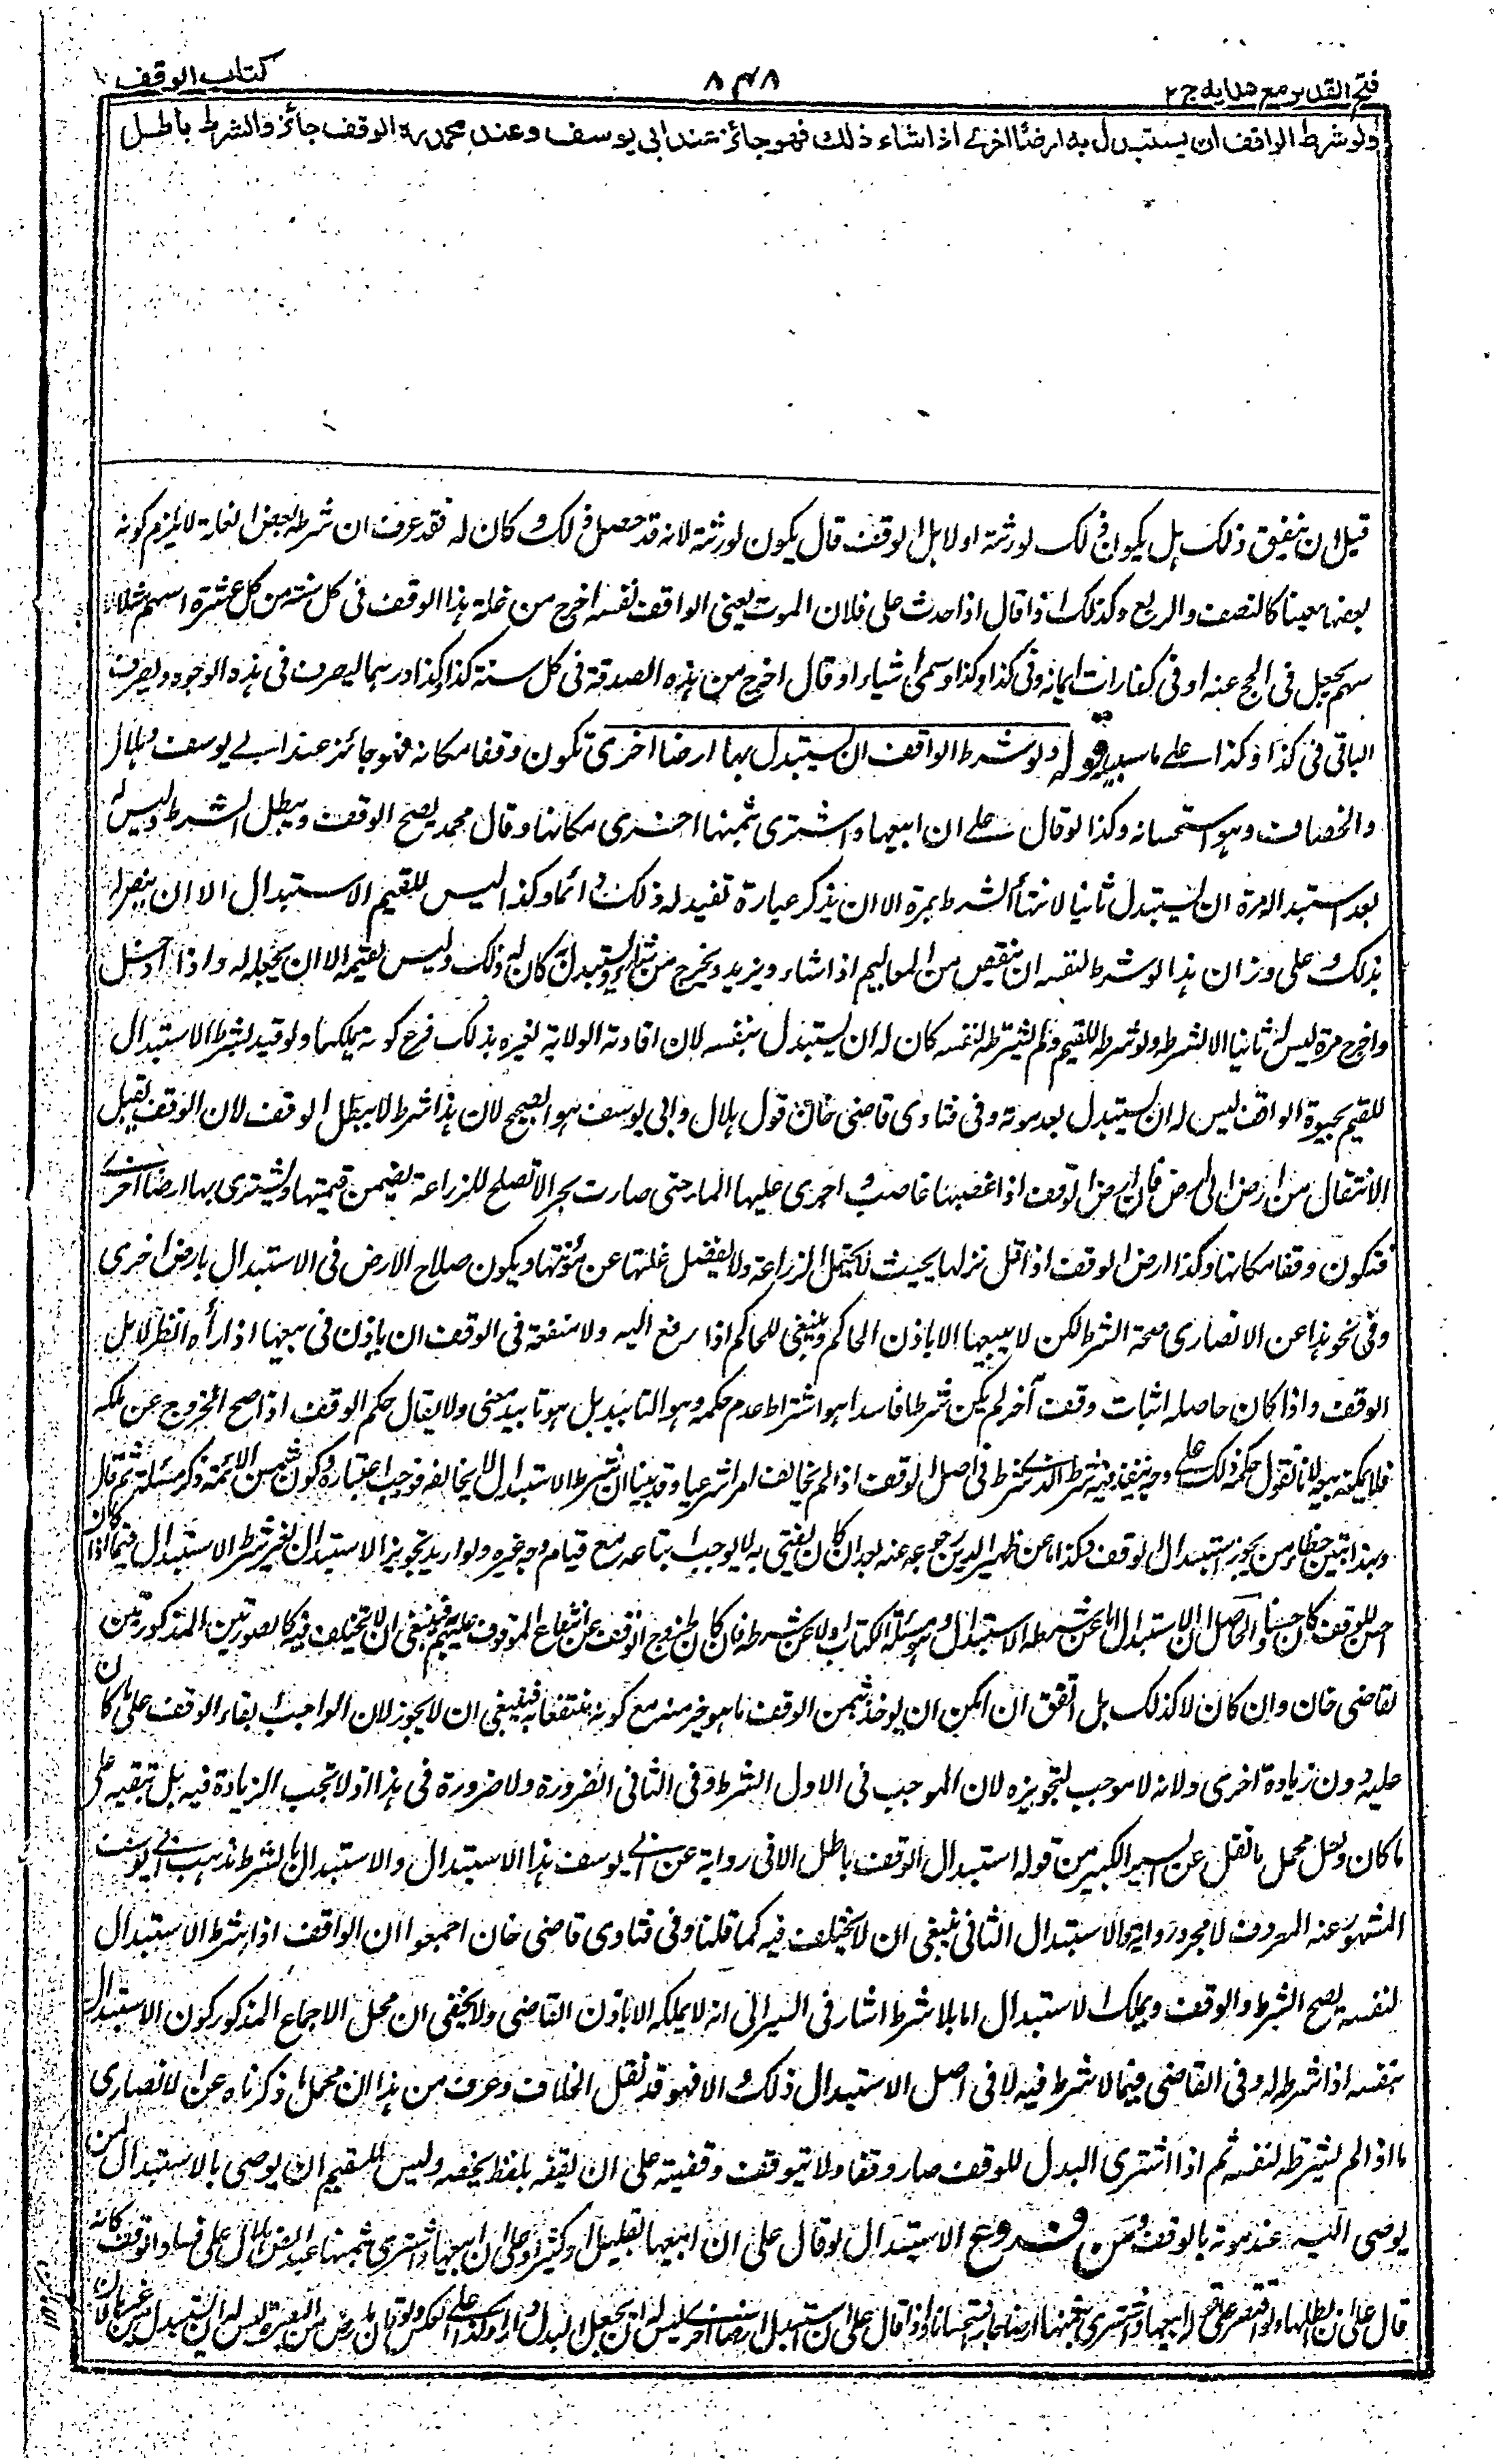 فتح القدير مع هدايه ج٢
٨٣٨
كتاب الوقف
ولو شرط الواقف ان يستبدل به ارضا اخرى اذا شاء ذلك فهو جائز عند ابي يوسف وعند محمد رح الوقف جائز والشرط باطل
قيل ان ينفق ذلك هل يكون ذلك لورثته او لاهل الوقف قال يكون لورثته لانه قد حصل ذلك وكان له فقد عرف ان شرطه بعض الغلة لا يلزم كونه
بعضها معينا كالنصف والربع وكذلك اذا قال اذا حدث على فلان الموت يعنى الواقف نفسه اخرج من غلة هذا الوقف فى كل سنة من كل عشرة اسهم مثلا
سهم يجعل فى الحج عنه او فى كفارات ايمانه وفى كذا وكذا وسمى اشياء او قال اخرج من هذه الصدقة فى كل سنة كذا وكذا درهما ليصرف فى هذه الوجوه ويصرف
الباقى فى كذا وكذا على ما سبله قوله ولو شرط الواقف ان يستبدل بها ارضا اخرى تكون وقفا مكانه فهو جائز عند ابى يوسف وهلال
والخصاف وهو استحسان وكذا لو قال على ان ابيعها واشترى بثمنها اخرى مكانها وقال محمد يصح الوقف ويبطل الشرط وليس له
بعد استبداله مرة ان يستبدل ثانيا لانتهاء الشرط بمرة الا ان يذكر عبارة تفيد له ذلك دائما وكذا ليس للقيم الاستبدال الا ان ينص له
بذلك وعلى وزان هذا لو شرط لنفسه ان ينقص من المعاليم اذا شاء ويزيد ويخرج من شاء ويستبدل به كان له ذلك وليس لقيمه الا ان يجعله له واذا ادخل
واخرج مرة ليس له ثانيا الا بشرطه ولو شرطه للقيم ولم يشترطه لنفسه كان له ان يستبدل بنفسه لان افادته الولاية لغيره بذلك فرع كونه يملكها ولو قيد شرط الاستبدال
للقيم بحيوة الواقف ليس له ان يستبدل بعد موته وفى فتاوى قاضى خان قول هلال وابى يوسف هو الصحيح لان هذا شرط لا يبطل الوقف لان الوقف يقبل
الانتقال من ارض الى ارض فان ارض الوقف اذا غصبها غاصب واجرى عليها الماء حتى صارت بحرا لا تصلح للزراعة يضمن قيمتها ويشترى بها ارضا اخرى
فتكون وقفا مكانها وكذا ارض الوقف اذا قل نزلها بحيث لا تحتمل الزراعة ولا تفضل غلتها عن مؤنتها ويكون صلاح الارض فى الاستبدال بارض اخرى
وفى نحو هذا عن الانصارى صحة الشرط لكن لا يبيعها الا باذن الحاكم وينبغى للحاكم اذا رفع اليه ولا منفعة فى الوقف ان ياذن فى بيعها اذا رأه انظر لاهل
الوقف واذا كان حاصله اثبات وقف آخر لم يكن شرطا فاسدا هو اشتراط عدم حكمه وهو التابيد بل هو تابيد معنى ولا يقال حكم الوقف اذا صح الخروج عن ملكه
فلا يمكنه بيعه لانا نقول حكمه ذلك على وجه ينفذ فيه شرط الذى شرط فى اصل الوقف اذا لم يخالف امرا شرعيا وقد بينا ان شرط الاستبدال لا يخالفه فوجب اعتباره وكون شمس الائمة ذكر مسئلة ثم قال
وبهذا تبين خطأ من يجوز استبدال الوقف وكذا ما عن ظهير الدين رجوعه عنه بعد ان كان يفتى به لا يوجب اتباعه مع قيام وجه غيره ولو اريد تجويز الاستبدال بغير شرط الاستبدال فيما اذا كان
احسن للوقف كان حسنا والحاصل ان الاستبدال اما عن شرطه الاستبدال وهو مسئلة الكتاب او لا عن شرطه فان كان لخروج الوقف عن انتفاع الموقوف عليهم فينبغى ان لا يختلف فيه كالصورتين المذكورتين
لقاضى خان وان كان لا كذلك بل اتفق ان امكن ان يوخذ بثمن الوقف ما هو خير منه مع كونه منتفعا به فينبغى ان لا يجوز لان الواجب ابقاء الوقف على ما كان
عليه دون زيادة اخرى ولانه لا موجب لتجويزه لان الموجب فى الاول الشرط وفى الثانى الضرورة ولا ضرورة فى هذا اذ لا تجب الزيادة فيه بل تبقيه على
ما كان ولعل محمل ما نقل عن السير الكبير من قوله استبدال الوقف باطل الا فى رواية عن ابى يوسف هذا الاستبدال والاستبدال بالشرط مذهب ابى يوسف
المشهور عنه المعروف لا مجرد رواية والاستبدال الثانى ينبغى ان لا يختلف فيه كما قلنا وفى فتاوى قاضى خان اجمعوا ان الواقف اذا شرط الاستبدال
لنفسه يصح الشرط والوقف ويملك الاستبدال اما بلا شرط اشار فى السير الى انه لا يملكه الا باذن القاضى ولا يخفى ان محل الاجماع المذكور كون الاستبدال
بنفسه اذا شرطه له وفى القاضى فيما لا شرط فيه لا فى اصل الاستبدال ذلك والا فهو قد نقل الخلاف وعرف من هذا ان محمل ما ذكرناه عن الانصارى
ما اذا لم يشترطه لنفسه ثم اذا اشترى البدل للوقف صار وقفا ولا يتوقف وقفيته على ان يقفه بلفظ يخصه وليس للقيم ان يوصى بالاستبدال لمن
يوصى اليه عند موته بالوقف ومن فروع الاستبدال لو قال على ان ابيعها بقليل او كثير او على ان ابيعها واشترى بثمنها عبدا نص هلال على فساد الوقف كانه
قال على ان ابطلها ولو اقتصر على قوله ابيعها واشترى بثمنها ارضا جاز استحسانا واذا قال على ان استبدل ارضا اخرى ليس له ان يجعل البدل دارا وكذا على العكس ولو قال بارض من البصرة ليس له ان يستبدل من غيرها